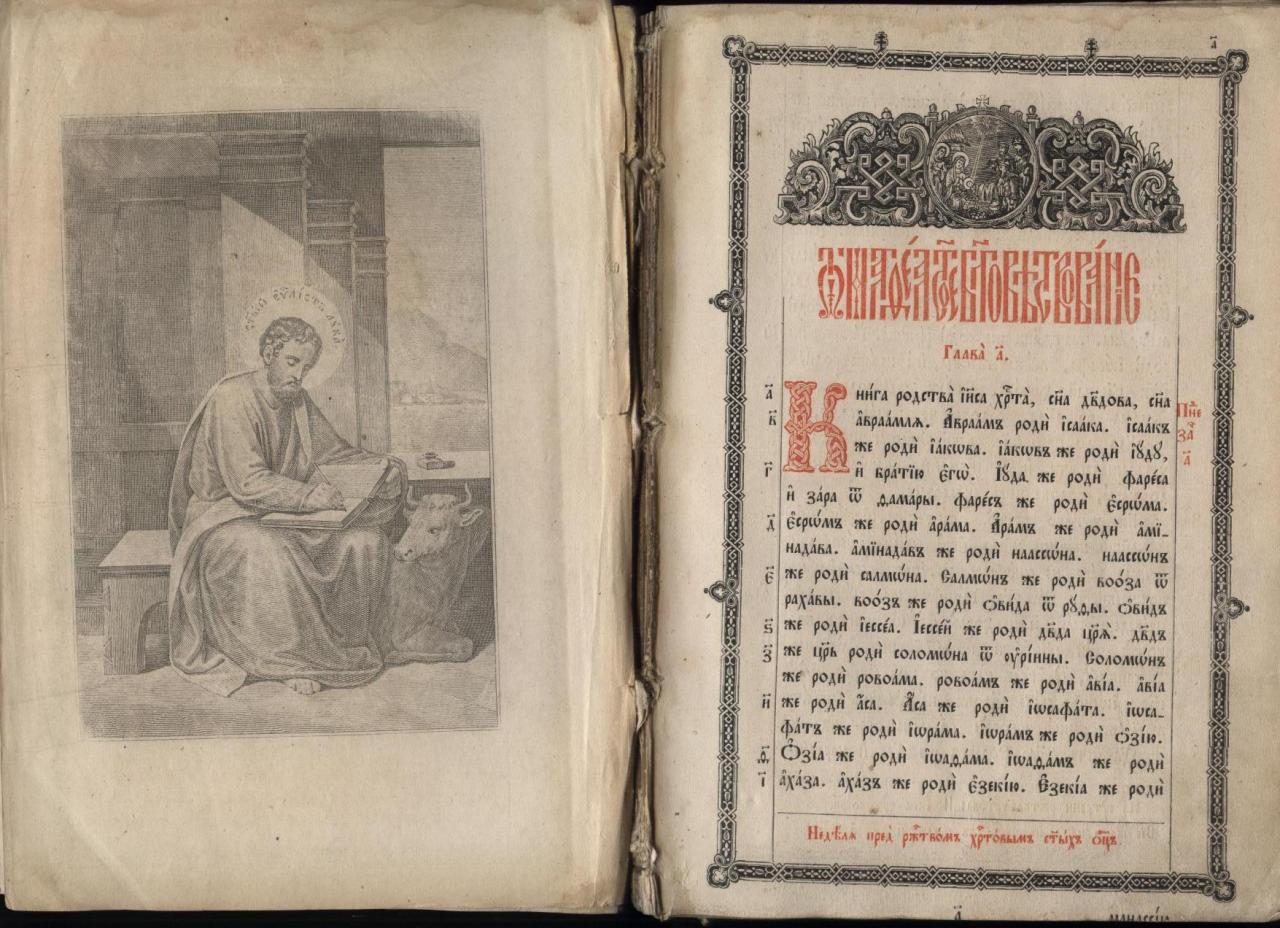 свѧты́й є҆ѵⷢ҇лі́стъ лꙋка̀
а҃
Ѿ матѳе́а ст҃о́е бл҃говѣствова́нїе
Глава̀ а҃.
а҃ Кни́га родства̀ і҆и҃са хрⷭ҇та̀, сн҃а дв҃дова, сн҃а
в҃ а҆враа́млѧ. А҆враа́мъ родѝ і҆саа́ка. і҆саа́къ
же родѝ і҆а́кѡва. і҆а́кѡвъ же родѝ і҆ꙋ́дꙋ,
г҃ и҆ бра́тїю є҆гѡ̀. І҆ꙋ́да же родѝ фаре́са
и҆ за́ра ѿ ѳама́ры. фаре́съ же родѝ є҆срѡ́ма.
д҃ є҆срѡ́мъ же родѝ а҆ра́ма. А҆ра́мъ же родѝ а҆мї-
нада́ва. а҆мїнада́въ же родѝ наассѡ́на. наассѡ́нъ
є҃ же родѝ салмѡ́на. Салмѡ́нъ же родѝ воо́за ѿ
раха́вы. воо́зъ же родѝ ѡ҆ви́да ѿ рꙋ́ѳы. ѡ҆ви́дъ
ѕ҃ же родѝ і҆ессе́а. І҆ессе́й же родѝ дв҃да цр҃ѧ̀. дв҃дъ
з҃ же цр҃ь родѝ соломѡ́на ѿ ᲂу҆рі́ины. Соломѡ́нъ
же родѝ ровоа́ма. ровоа́мъ же родѝ а҆ві́а. а҆ві́а
и҃ же родѝ а҆́са. А҆́са же родѝ і҆ѡсафа́та. і҆ѡса-
фа́тъ же родѝ і҆ѡра́ма. і҆ѡра́мъ же родѝ ѻ҆зі́ю.
ѳ҃ Ѻ҆зі́а же родѝ і҆ѡаѳа́ма. і҆ѡаѳа́мъ же родѝ
і҃ а҆ха́за. а҆ха́зъ же родѝ є҆зекі́ю. Є҆зекі́а же родѝ
Пⷣнⷭ҇е
заⷱ҇
а҃
Недѣ́лѧ пред̾ рⷤ҇твомъ хрⷭ҇то́вымъ ст҃ы́хъ ѻ҆ц҃ъ.
а҃ манассі́ю